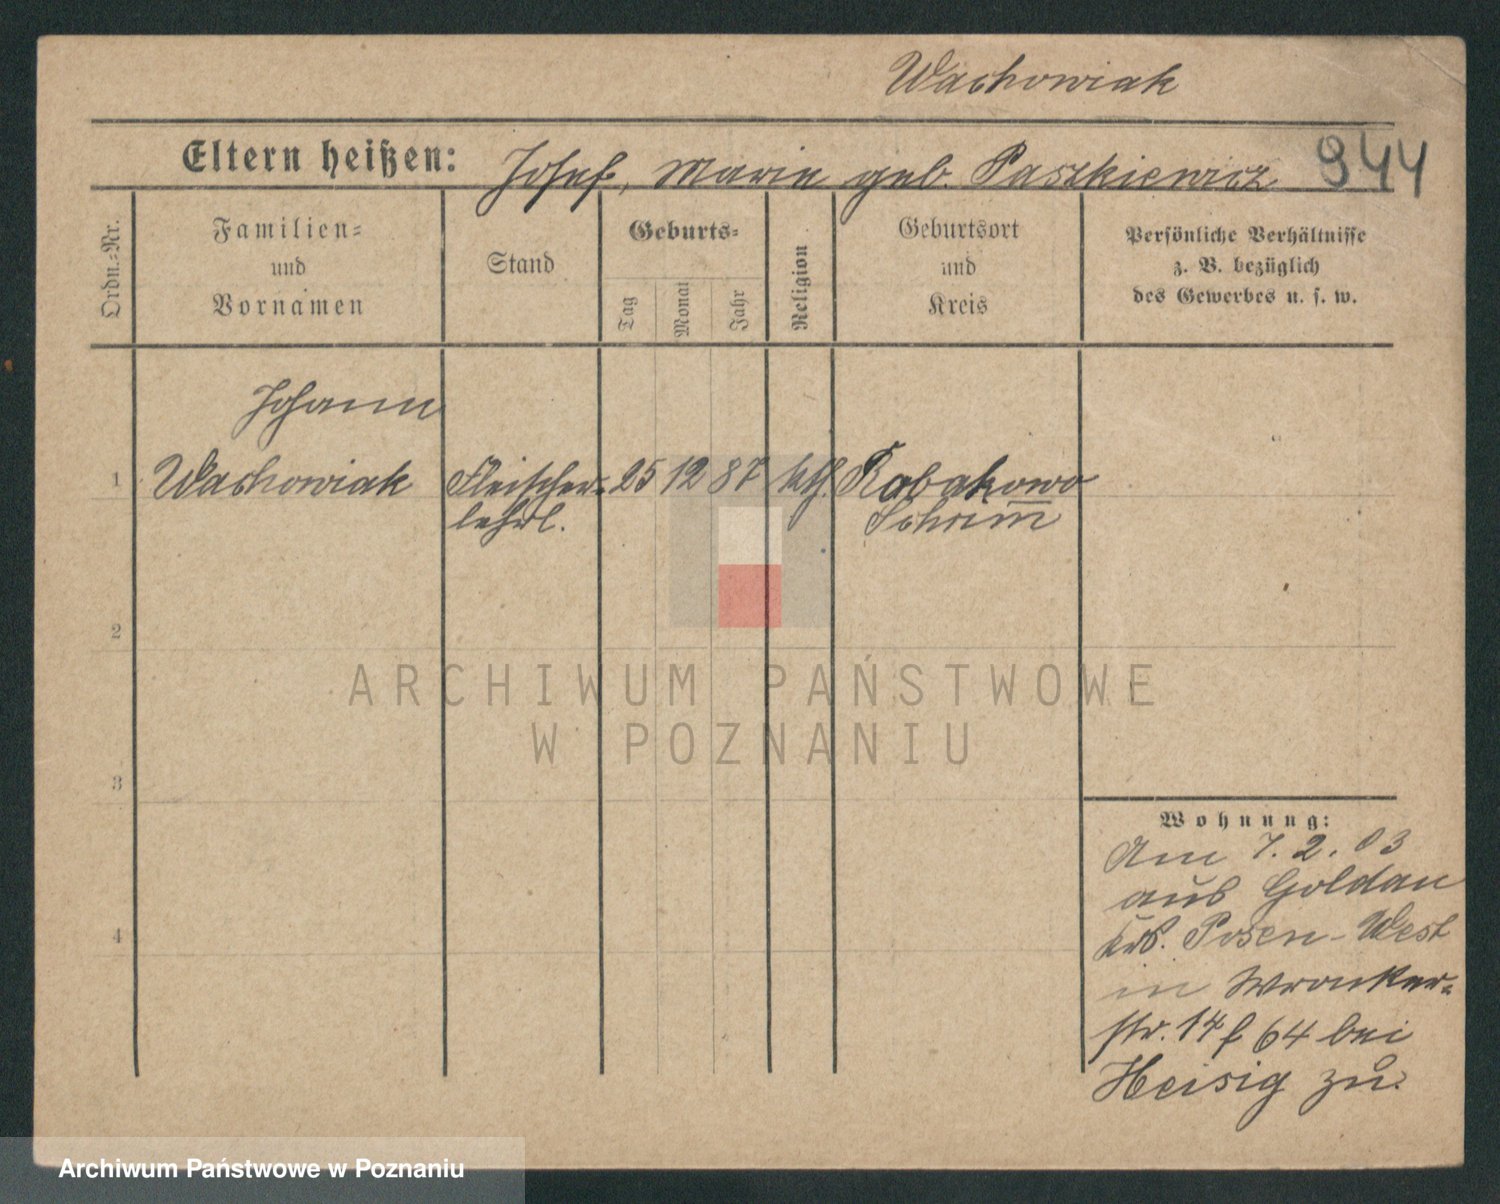 Wachowiak
Eltern heißen: Josef, Marie geb. Paszkiewicz 944
Ordn.-Nr.
Familien-
und
Vornamen
Stand
Geburts-
Tag
Monat
Jahr
Religion
Geburtsort
und
Kreis
Persönliche Verhältnisse
z. B. bezüglich
des Gewerbes u. s. w.
Johann
1 Wachowiak Fleischer- 25 12 87 kth. Kabakowo
lehrl. Schrimm
2
3
4
Wohnung:
Am 7.2.03
aus Goldau
Krs. Posen-West
in Wronker-
str. 14 f 64 bei
Heisig zu.
ARCHIWUM PAŃSTWOWE
W POZNANIU
Archiwum Państwowe w Poznaniu